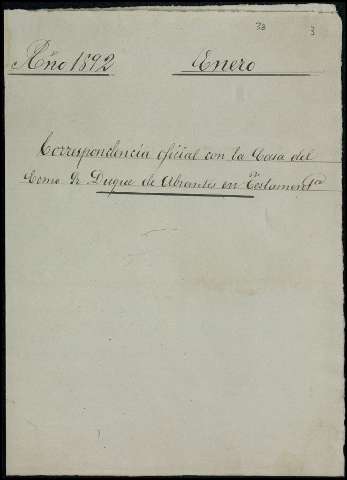 3a 3
Año 1892 Enero
Correspondencia oficial con la Casa del
Exmo Sr Duque de Abrantes en Testamentª